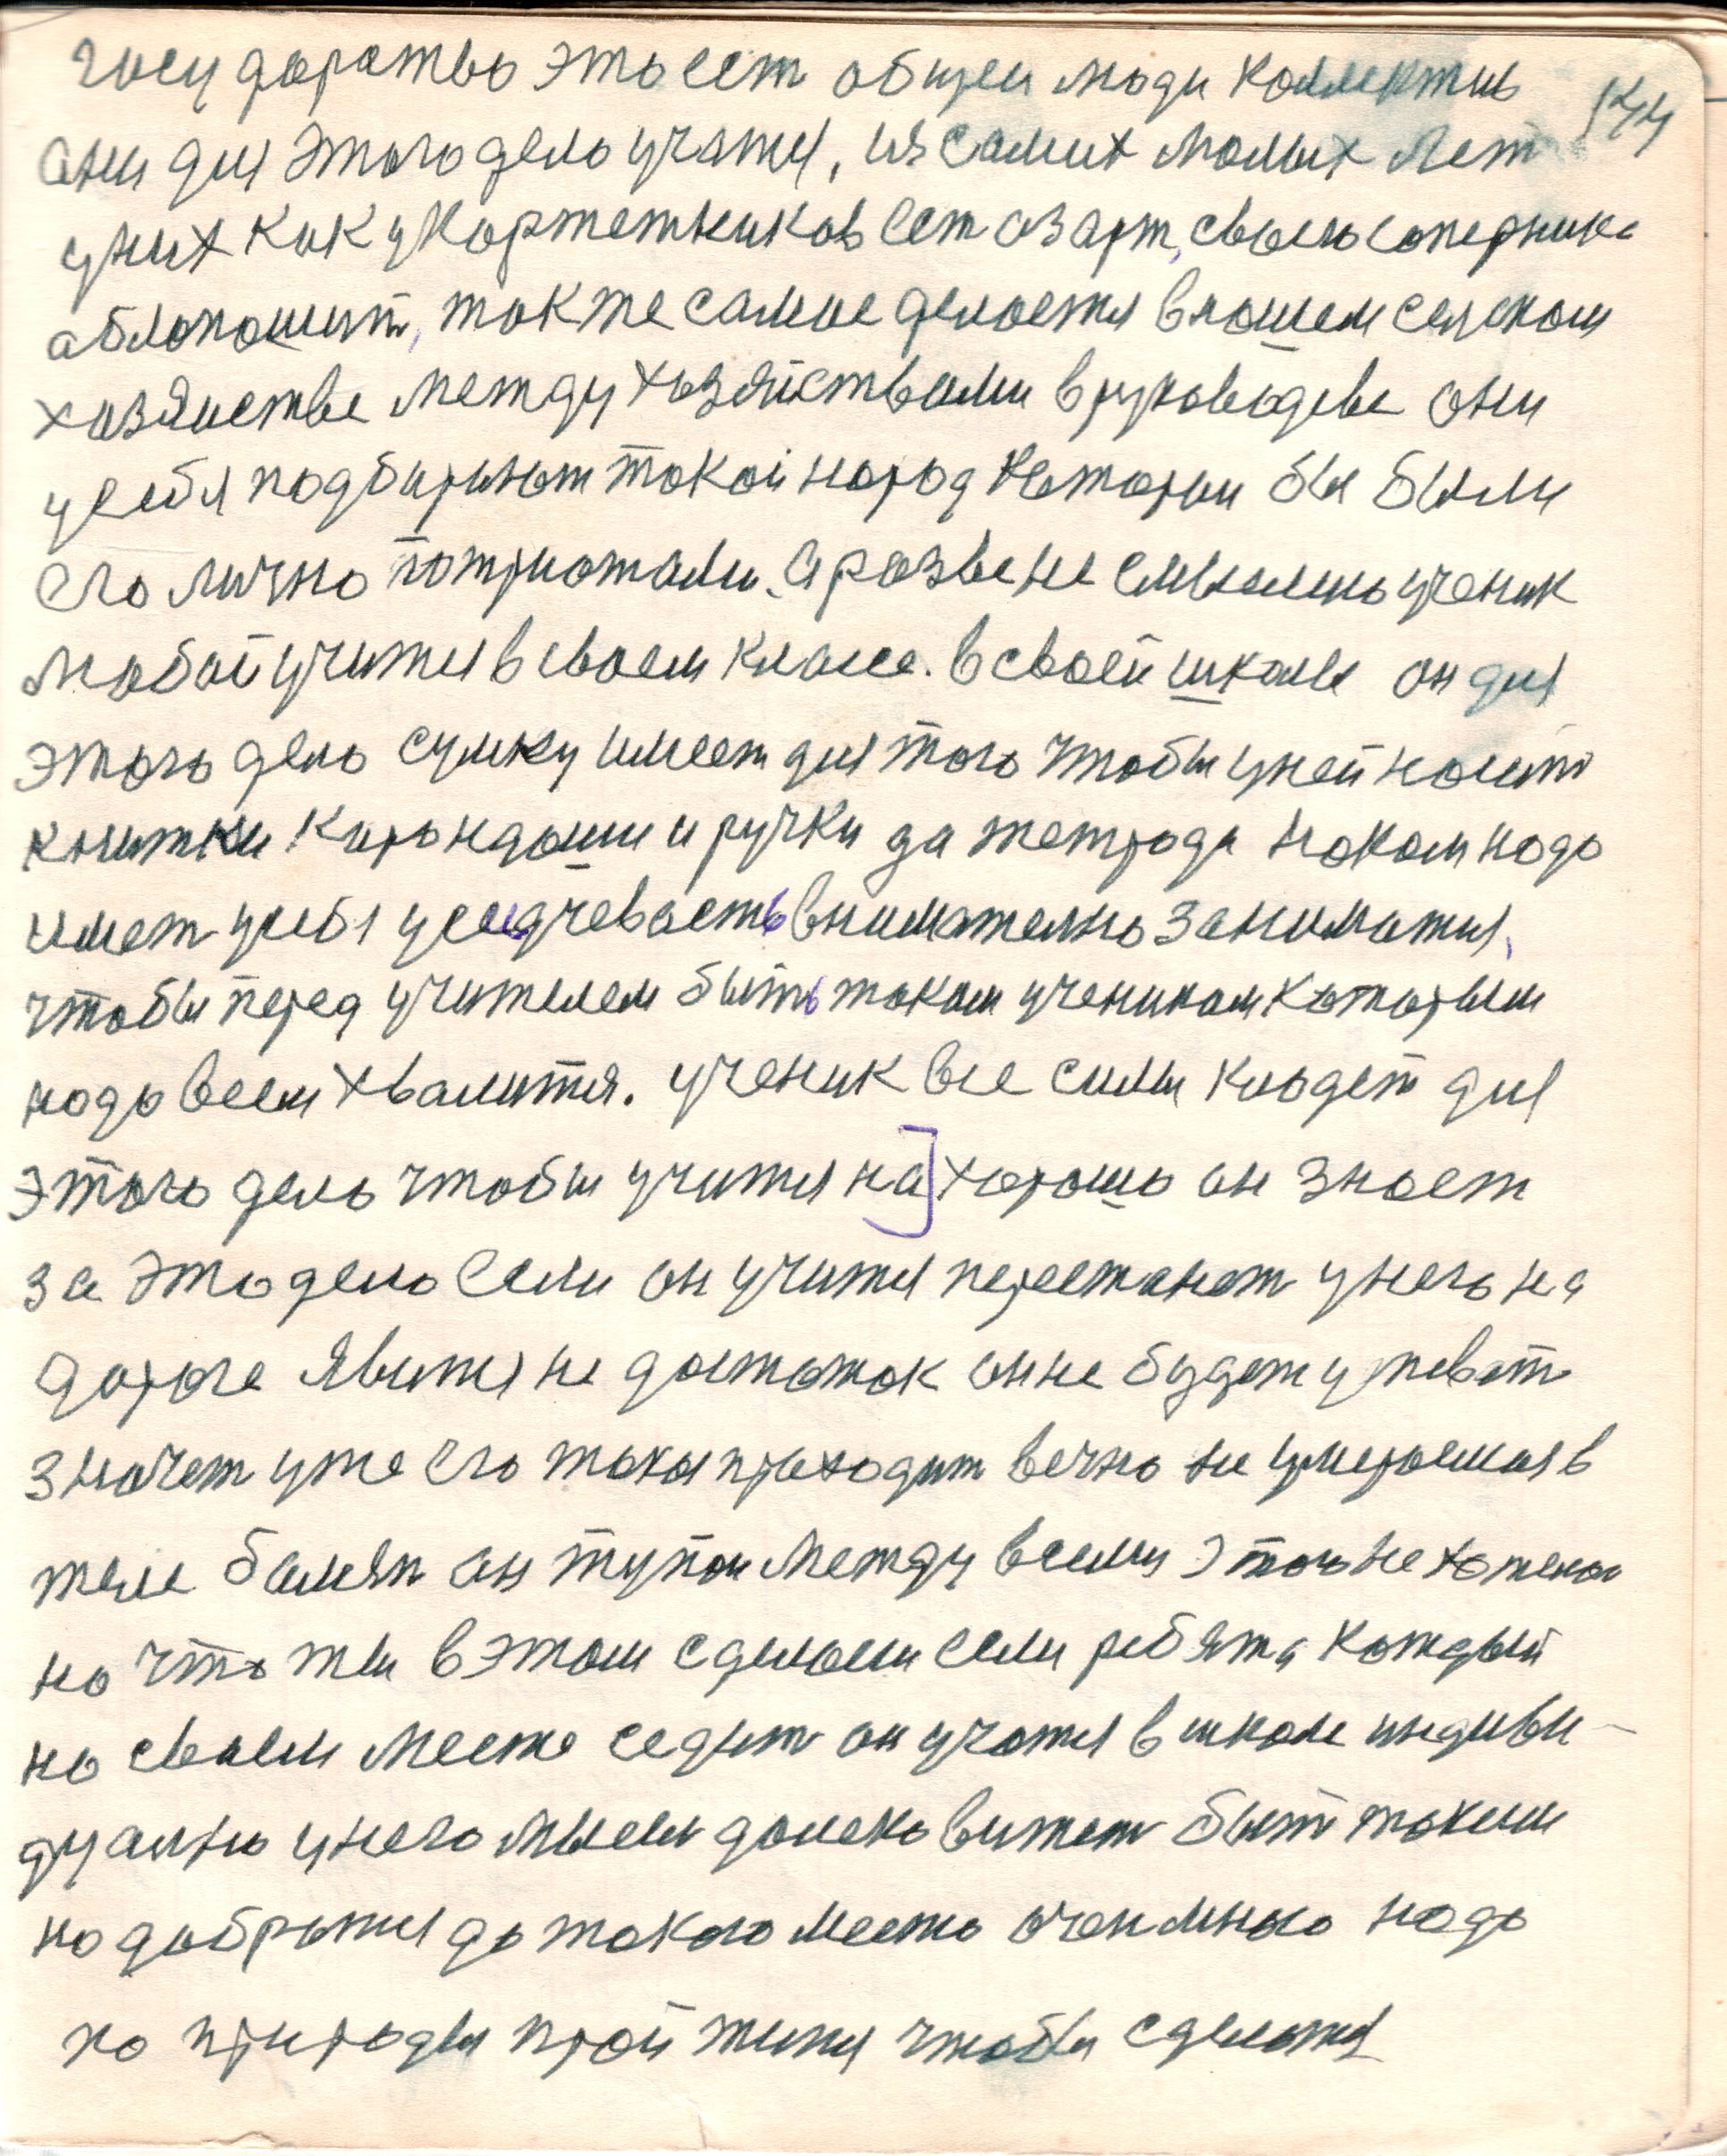 государство это ест общеи люди коллектив
144
они для этого дело учатся, из самих малых лет
у них как у картетников ест азарт, своего соперника
облапошит, так же самое делается в нашем селском
хозяистве между хозяйствами в руководеве они
у себя подбирают такой народ которыи бы были
его лично патриотами. А разве не смыслено ученик
любой учится в своем класе. в своей школе он для
этого дело сумку имеет для того чтобы у ней носит
книжки карандаши и ручки за тетрада на ком надо
имет у себя усидчевость внимателно заниматся,
чтобы перед учителем быть таким учеником которым
надо всем хвалится. ученик все силы кладет для
этого дело чтобы учится на] хорошо он знает
за это дело если он учится перестанет у него на
дороге явится не достаток он не будет успеват
значет уже его така приходит вечно не умераемая в
теле болезн он тупои между всеми этого не хотелос
но что ты в этом сделаеш если ребята каждый
на своем месте седит он учатся в школе индиви-
дуално у него мысли далеко витет быт таким
но добрытся до такого место очен много надо
по природы пройтится чтобы сделатся